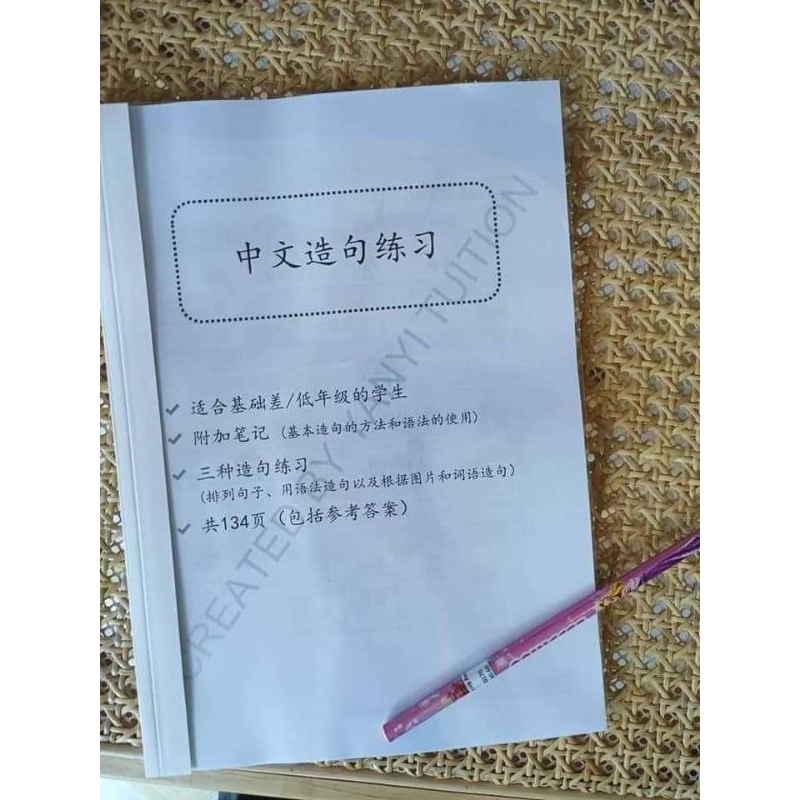 中文造句练习
适合基础差/低年级的学生
附加笔记（基本造句的方法和语法的使用）
三种造句练习
（排列句子、用语法造句以及根据图片和词语造句）
共134页（包括参考答案）
CREATED BY YANYI TUITION